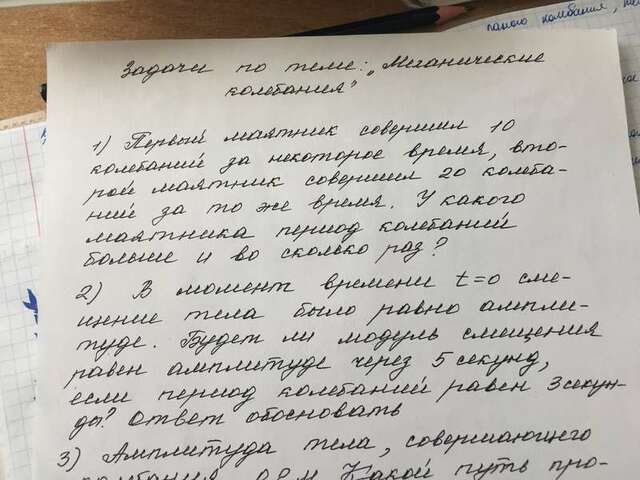 Задачи по теме: „Механические
колебания"
1) Первый маятник совершил 10
колебаний за некоторое время, вто-
рой маятник совершил 20 колеба-
ний за то же время. У какого
маятника период колебаний
больше и во сколько раз?
2) В момент времени t=0 сме-
щение тела было равно ампли-
туде. Будет ли модуль смещения
равен амплитуде через 5 секунд,
если период колебаний равен 3 секун-
ды? Ответ обосновать
3) Амплитуда тела, совершающего
колебания Какой путь про-